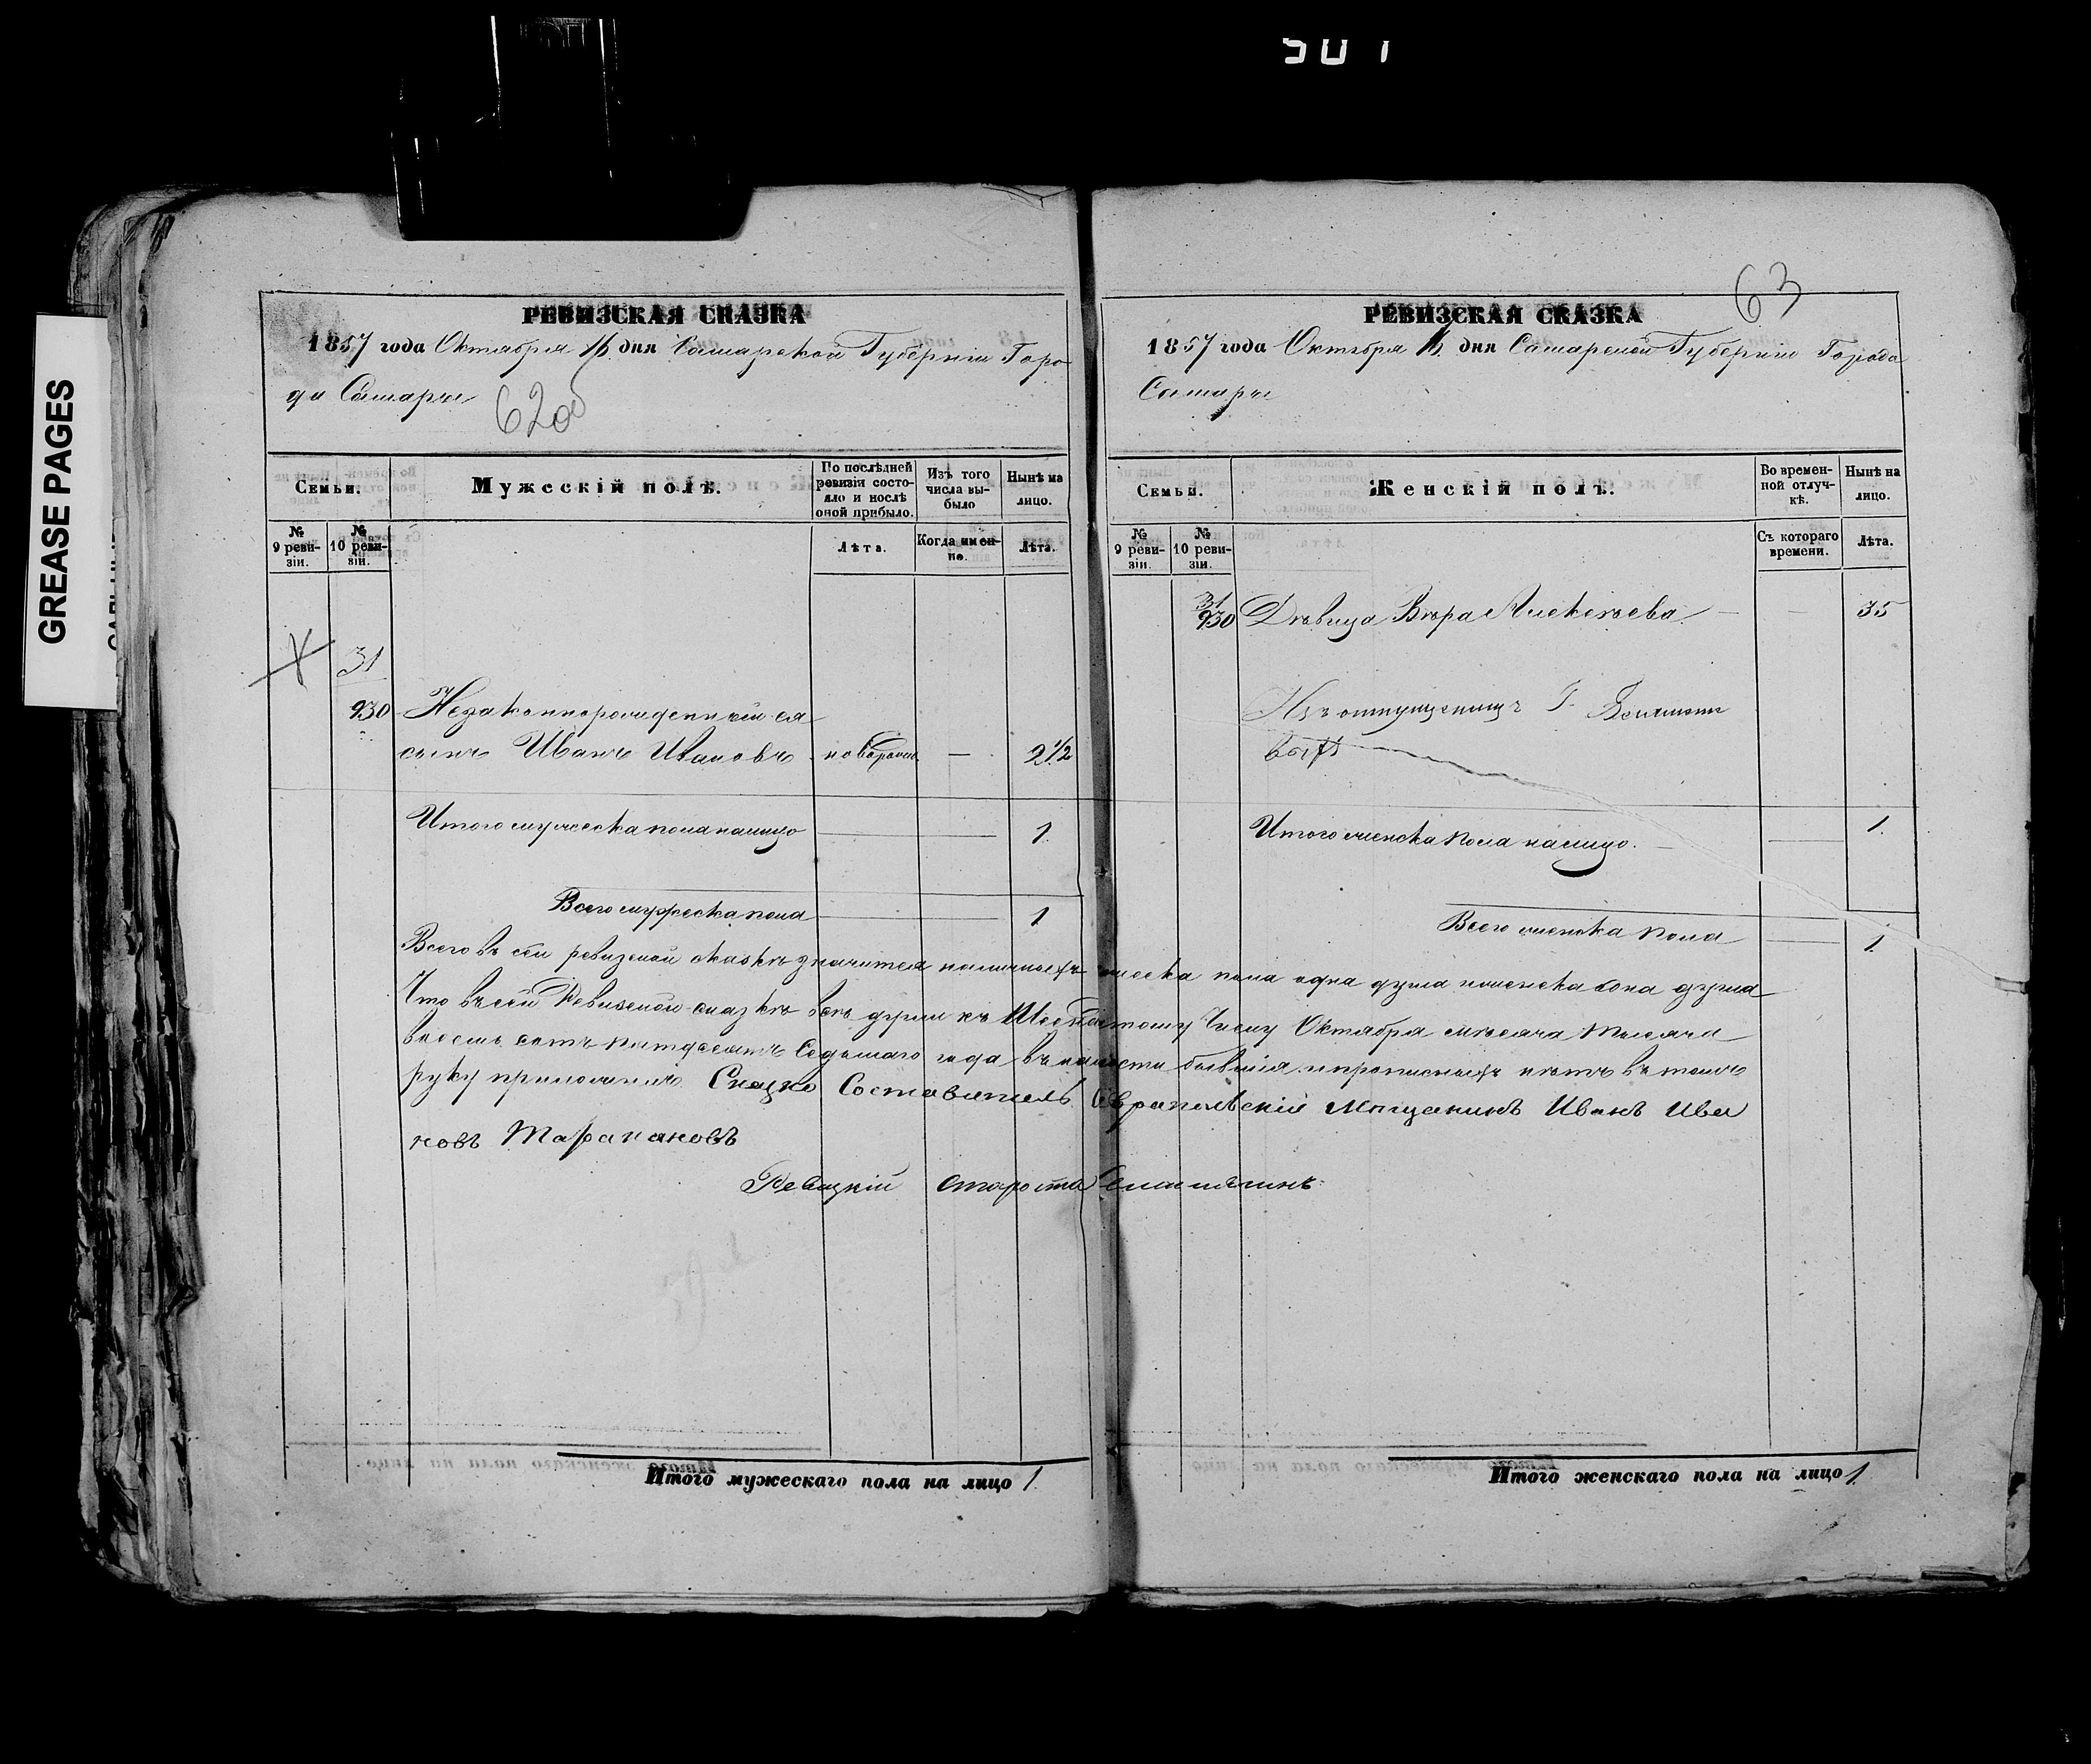 501
GREASE PAGES
РЕВИЗСКАЯ СКАЗКА
1857 года Октября 16 дня Самарской Губерніи Горо
да Самары
620б
Семьи.
Мужескій полъ.
По послѣдней ревизіи состояло и послѣ оной прибыло.
Изъ того числа выбыло
Нынѣ на лицо.
№ 9 ревизіи.
№ 10 ревизіи.
Лѣта.
Когда именно.
Лѣта.
31
930 Незаконнорожденный ея
сынъ Иванъ Ивановъ новорожд. — 2 1/2
Итого мужеска пола налицо 1
Всего мужеска пола 1
РЕВИЗСКАЯ СКАЗКА
63
1857 года Октября 16 дня Самарской Губерніи Города
Самары
Семьи.
Женскій полъ.
Во временной отлучкѣ.
Нынѣ на лицо.
№ 9 ревизіи.
№ 10 ревизіи.
Съ котораго времени.
Лѣта.
31
930 Дѣвица Вѣра Алексѣева — — 35
Изъ отпущениц Г.
Итого женска пола налицо. 1
Всего женска пола 1
Всего въ сей ревизской сказкѣ значится наличныхъ мужеска пола одна душа и женска одна душа
Что въ сей Ревизской сказкѣ всѣ души къ Шестнадцатому Числу Октября мѣсяца тысяча
восемь сотъ пятдесятъ Седьмаго года въ налости бывшія и прописныхъ нѣтъ въ томъ
руку приложилъ Сказко Составитель Мѣщанинъ Иванъ Ива
новъ Таракановъ
староста
Итого мужескаго пола на лицо 1
Итого женскаго пола на лицо 1